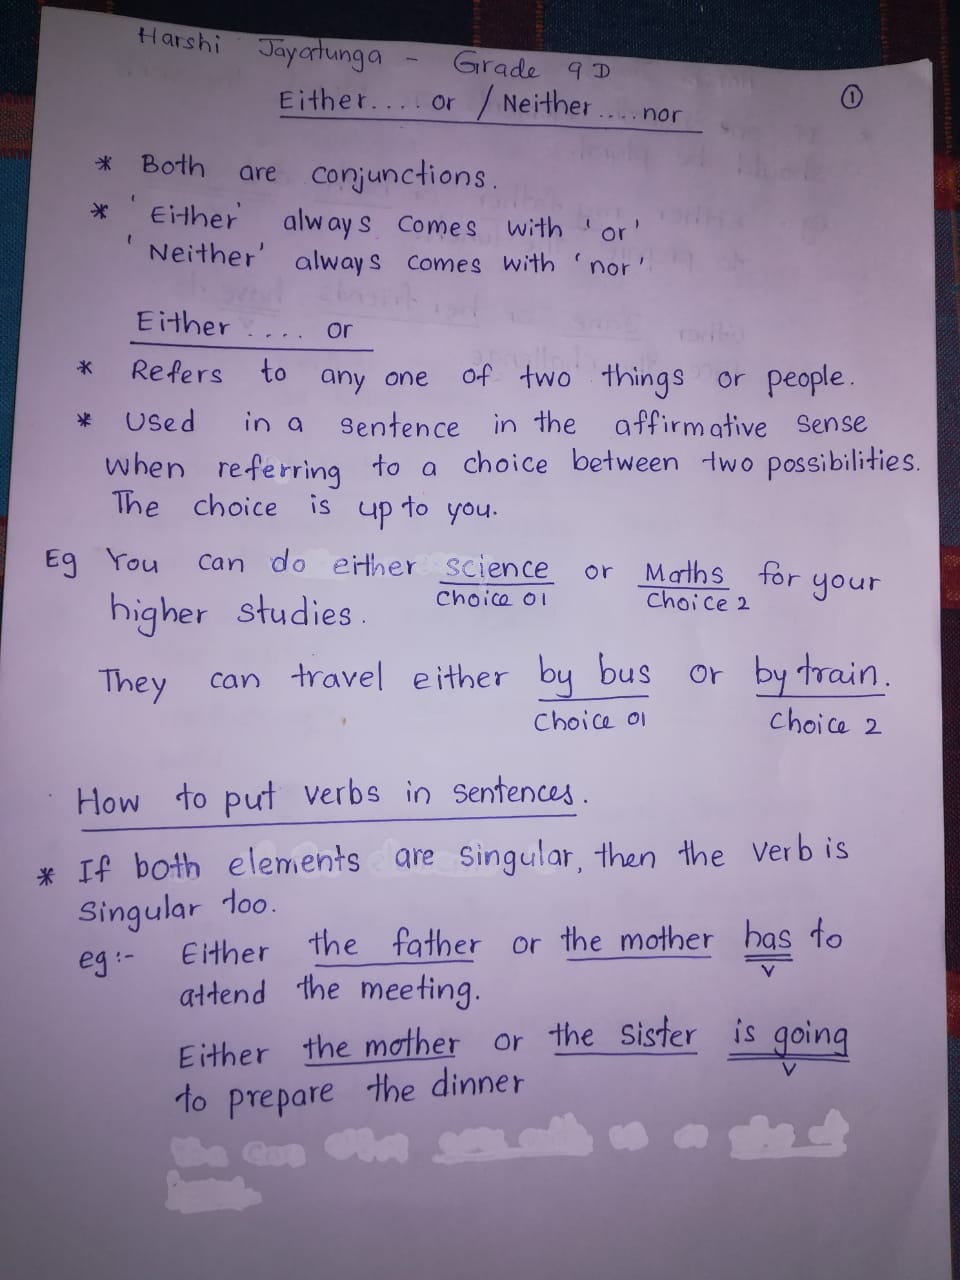 Harshi Jayatunga - Grade 9 D
Either.... or / Neither .... nor
①
* Both are conjunctions.
* 'Either' always comes with 'or'
'Neither' always comes with 'nor'
Either .... or
* Refers to any one of two things or people.
* Used in a sentence in the affirmative sense
when referring to a choice between two possibilities.
The choice is up to you.
Eg You can do either science or Maths for your
Choice 01 Choice 2
higher studies.
They can travel either by bus or by train.
Choice 01 Choice 2
How to put verbs in sentences.
* If both elements are singular, then the verb is
singular too.
eg:- Either the father or the mother has to
v
attend the meeting.
Either the mother or the sister is going
v
to prepare the dinner